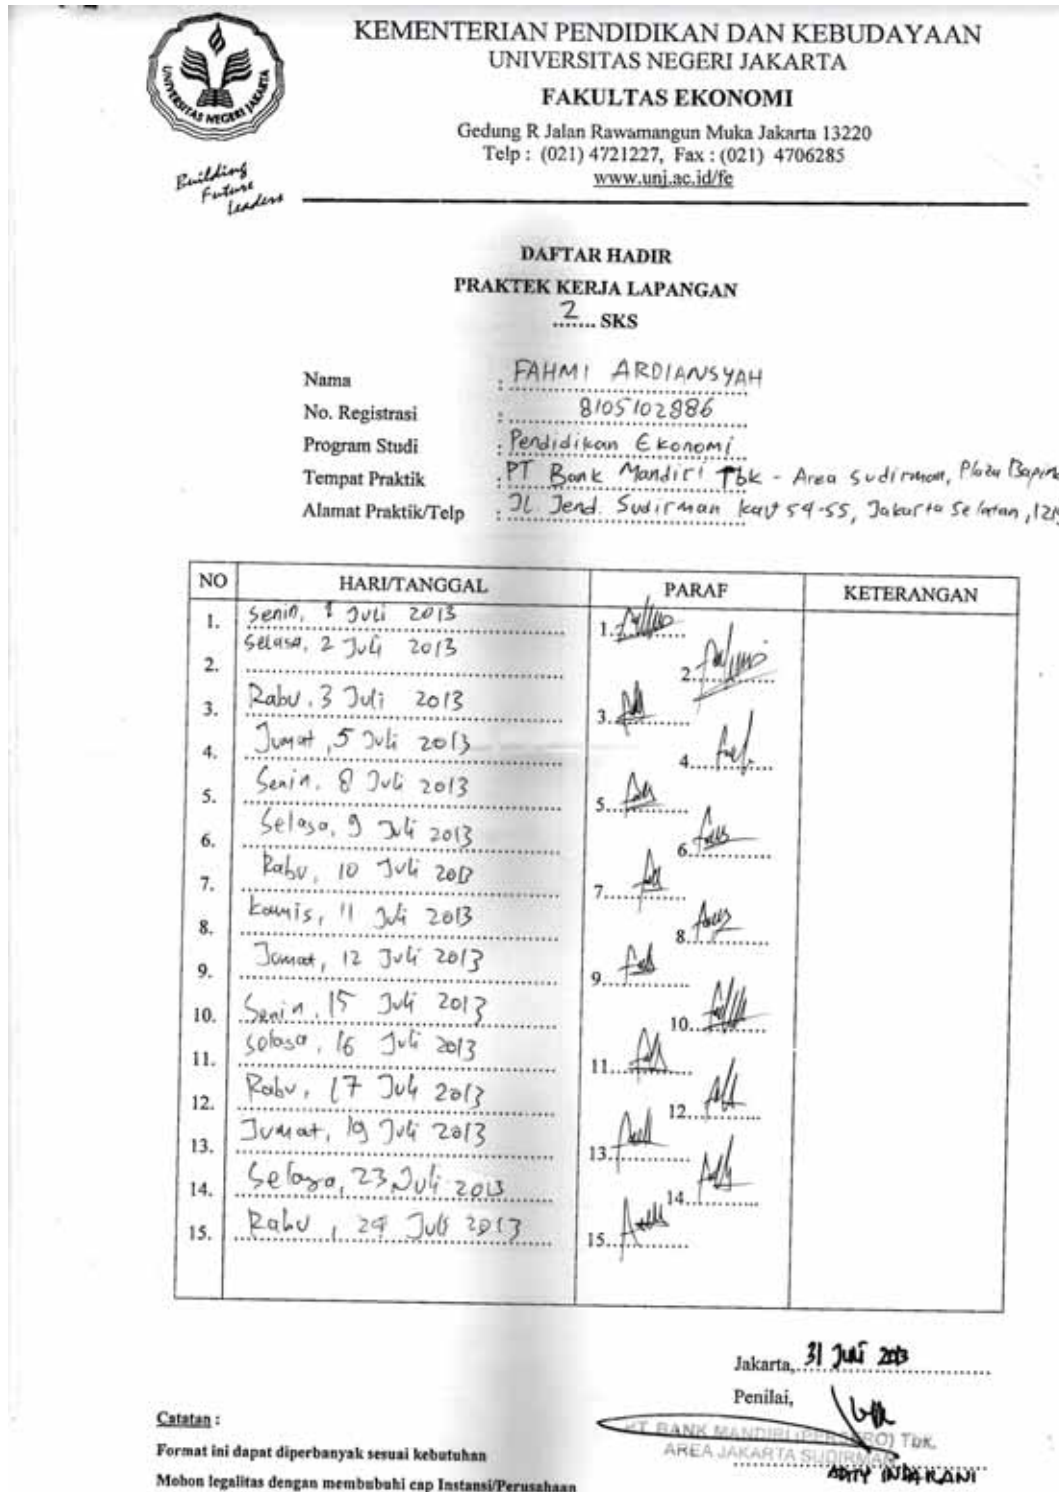 KEMENTERIAN PENDIDIKAN DAN KEBUDAYAAN
UNIVERSITAS NEGERI JAKARTA
FAKULTAS EKONOMI
Gedung R Jalan Rawamangun Muka Jakarta 13220
Telp : (021) 4721227, Fax : (021) 4706285
www.unj.ac.id/fe
UNIVERSITAS NEGERI JAKARTA
Building
Future
Leaders
DAFTAR HADIR
PRAKTEK KERJA LAPANGAN
2 SKS
Nama : FAHMI ARDIANSYAH
No. Registrasi : 8105102886
Program Studi : Pendidikan Ekonomi
Tempat Praktik : PT Bank Mandiri Tbk - Area Sudirman, Plaza
Alamat Praktik/Telp : Jl. Jend. Sudirman kav 54-55, Jakarta Selatan,
NO HARI/TANGGAL PARAF KETERANGAN
1. Senin, 1 Juli 2013 1.
2. Selasa, 2 Juli 2013 2.
3. Rabu, 3 Juli 2013 3.
4. Jumat, 5 Juli 2013 4.
5. Senin, 8 Juli 2013 5.
6. Selasa, 9 Juli 2013 6.
7. Rabu, 10 Juli 2013 7.
8. Kamis, 11 Juli 2013 8.
9. Jumat, 12 Juli 2013 9.
10. Senin, 15 Juli 2013 10.
11. Selasa, 16 Juli 2013 11.
12. Rabu, 17 Juli 2013 12.
13. Jumat, 19 Juli 2013 13.
14. Selasa, 23 Juli 2013 14.
15. Rabu, 24 Juli 2013 15.
Jakarta, 31 Juli 2013
Penilai,
PT. BANK MANDIRI (PERSERO) Tbk.
AREA JAKARTA SUDIRMAN
ADITY INDARANI
Catatan :
Format ini dapat diperbanyak sesuai kebutuhan
Mohon legalitas dengan membubuhi cap Instansi/Perusahaan